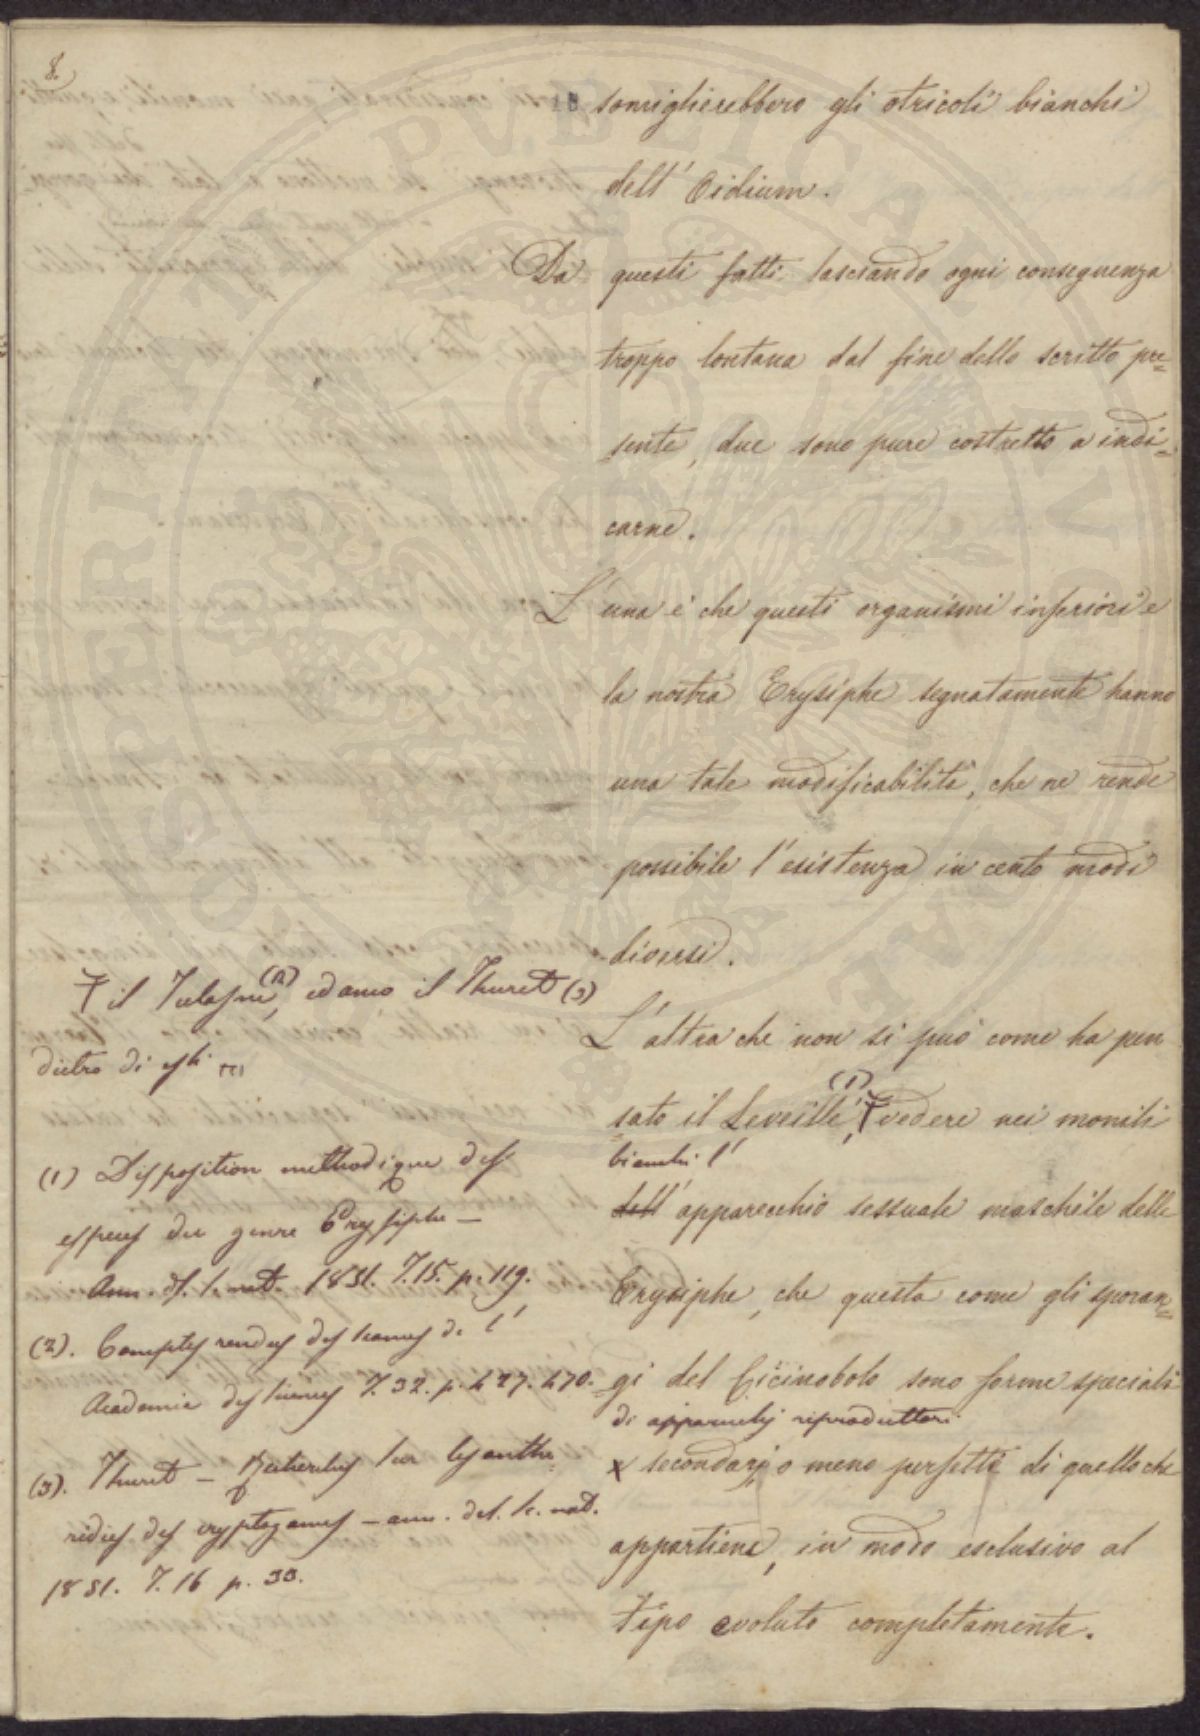 8.
18
somiglierebbero gli otricoli bianchi
dell' Oidium.
Da questi fatti lasciando ogni conseguenza
troppo lontana dal fine dello scritto pre=
sente, due sono pure costretto a indi=
carne.
L'una è che questi organismi inferiori e
la nostra Erysiphe segnatamente hanno
una tale modificabilità, che ne rende
possibile l'esistenza in cento modi
diversi.
L'altra che non si può come ha pen
sato il Leveillé, (1) Ŧ vedere nei monili
bianchi l'
dell' apparecchio sessuale maschile delle
Erysiphe, che questa come gli sporan=
gi del Cicinobolo sono forme speciali
di apparecchj riproduttori
x secondarj o meno perfetti di quello che
appartiene, in modo esclusivo al
tipo evoluto completamente.
Ŧ il Tulasne (2), ed anco il Thuret (3)
dietro di essi
(1) Disposition methodique des
especes du genre Erysiphe —
Ann. d. s. nat. 1851. T. 15. p. 119.
(2). Comptes rendus des seances de l'
Academie des sciences T. 32. p. 427. 470.
(3). Thuret — Recherches sur les anthe
ridies des cryptogames — ann. des. sc. nat.
1851. T. 16 p. 33.
PROSPERITATI PVBLICAE AVGENDAE